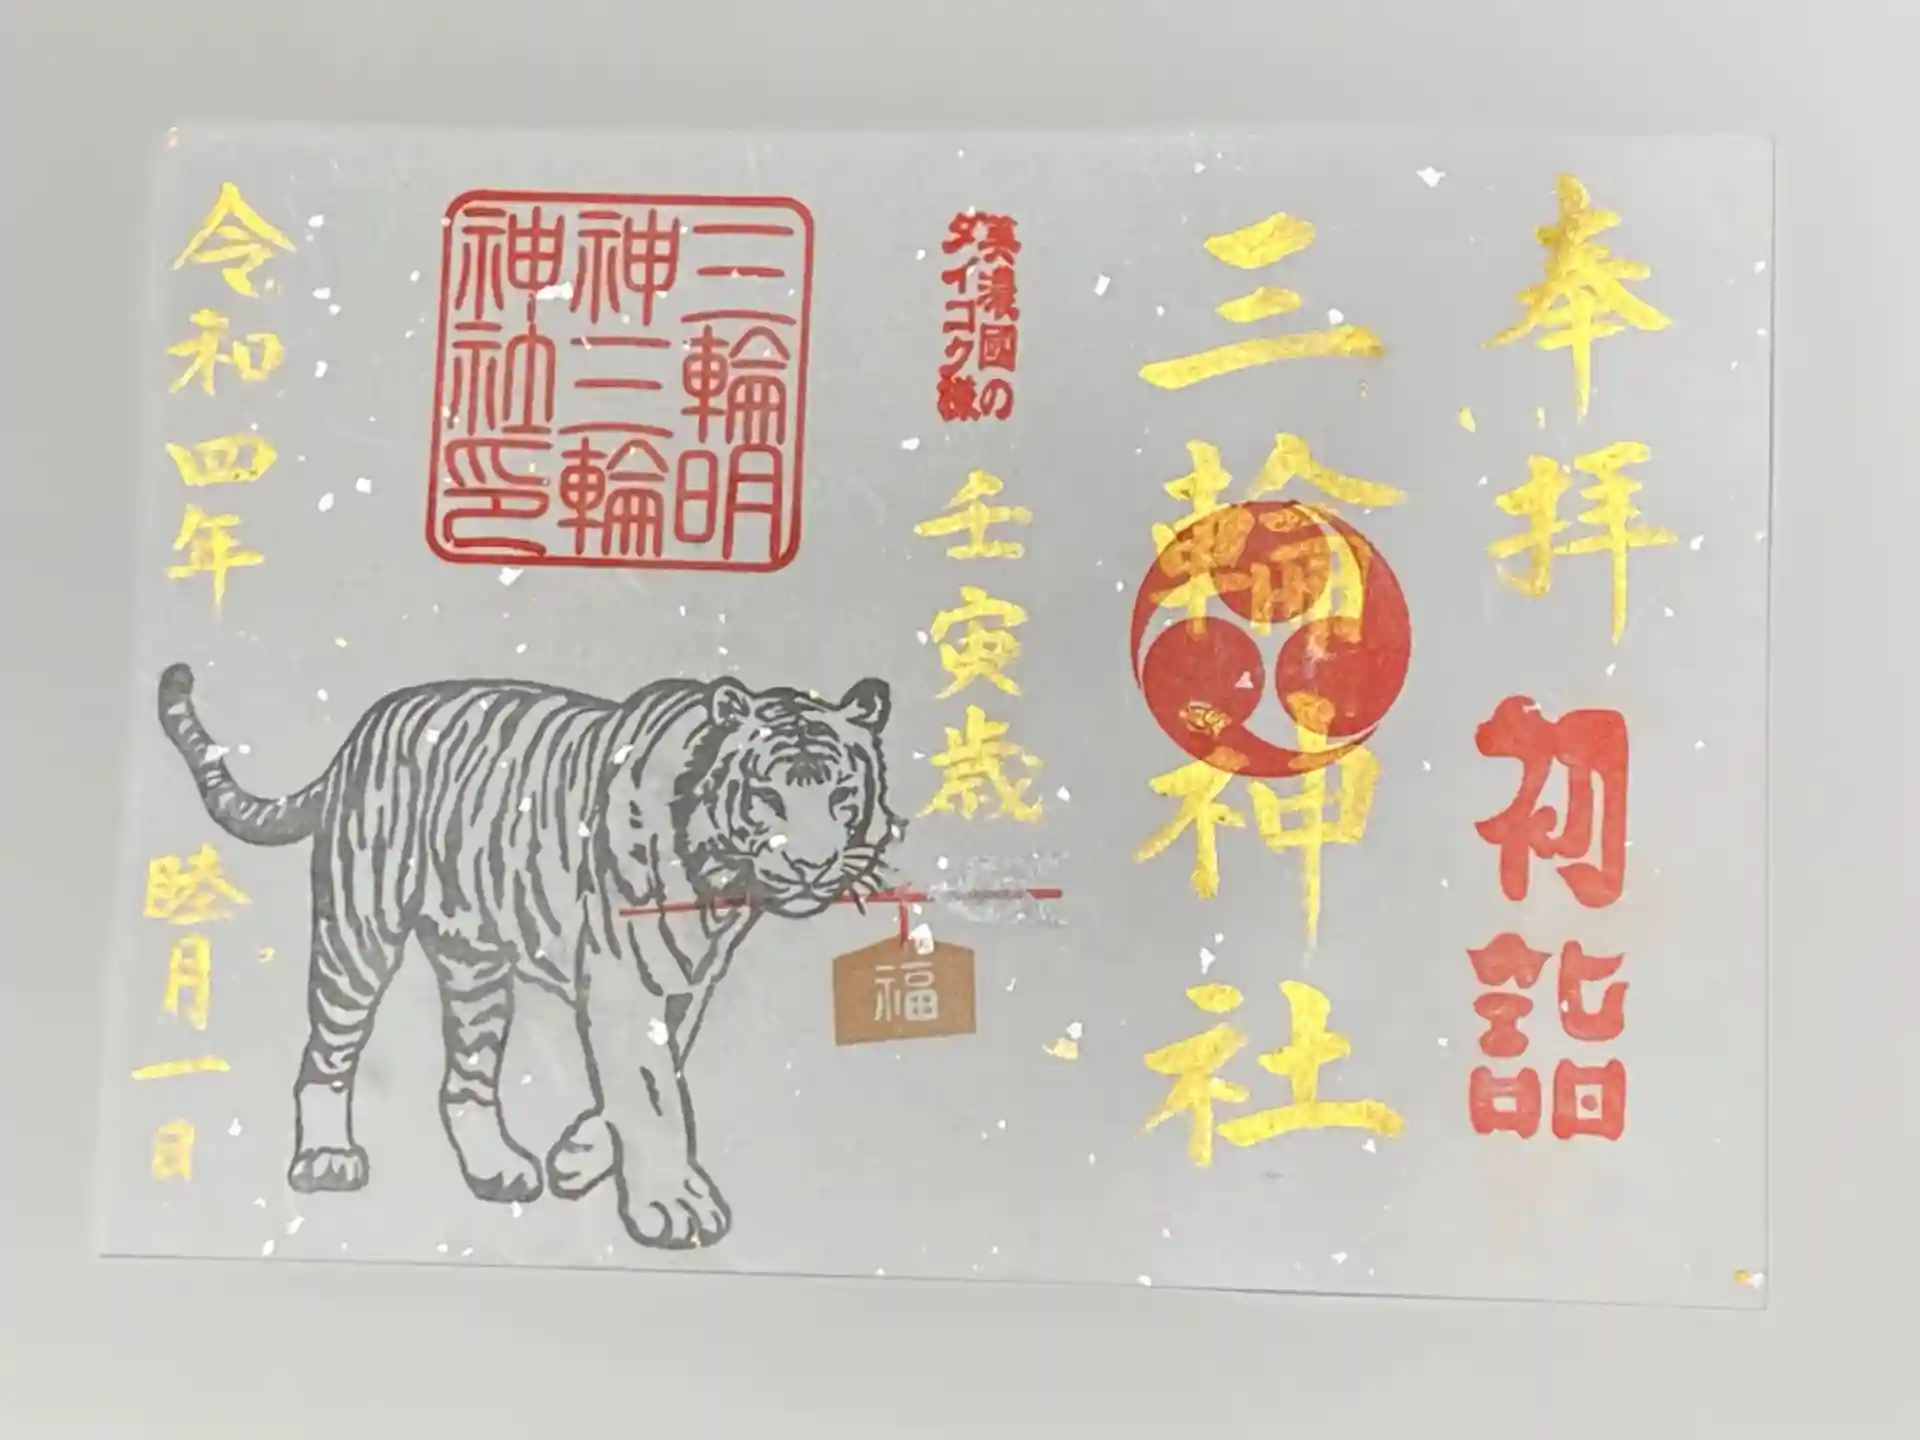 奉拝
初詣
三輪神社
美濃國の
ダイコク様
壬寅歳
福
三輪明
神三輪
神社印
令和四年
睦月一日